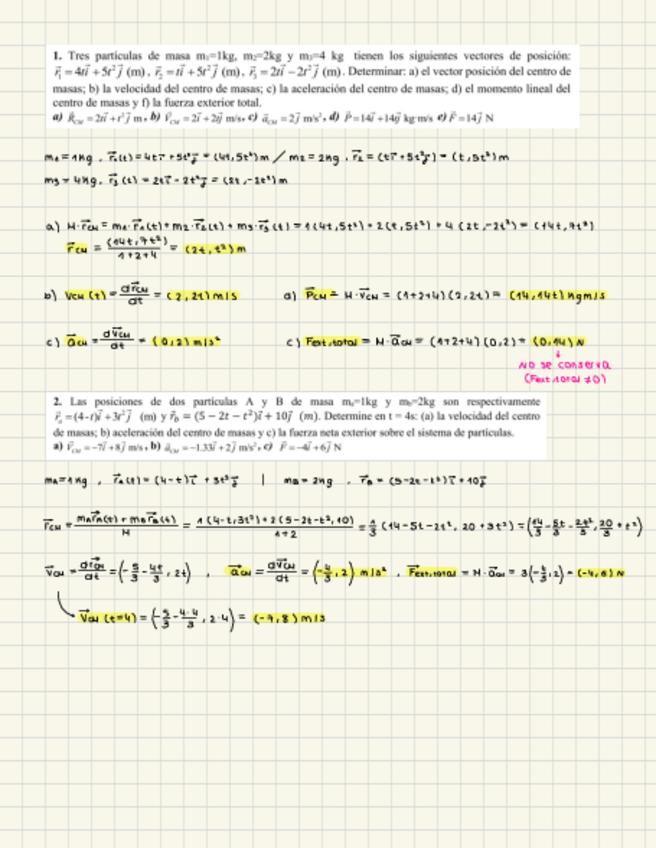 1. Tres partículas de masa m₁=1kg, m₂=2kg y m₃=4 kg tienen los siguientes vectores de posición:
r⃗₁ = 4ti⃗ + 5t²j⃗ (m), r⃗₂ = ti⃗ + 5t²j⃗ (m), r⃗₃ = 2ti⃗ − 2t²j⃗ (m). Determinar: a) el vector posición del centro de
masas; b) la velocidad del centro de masas; c) la aceleración del centro de masas; d) el momento lineal del
centro de masas y f) la fuerza exterior total.
a) R⃗CM = 2ti⃗ + t²j⃗ m, b) V⃗CM = 2i⃗ + 2tj⃗ m/s, c) a⃗CM = 2j⃗ m/s², d) P⃗ = 14i⃗ + 14tj⃗ kg·m/s e) F⃗ = 14j⃗ N
m₁ = 1kg , r⃗₁(t) = 4ti⃗ + 5t²j⃗ = (4t, 5t²) m / m₂ = 2kg , r⃗₂ = (ti⃗ + 5t²j⃗) = (t, 5t²) m
m₃ = 4kg , r⃗₃(t) = 2ti⃗ - 2t²j⃗ = (2t, -2t²) m
a) M·r⃗CM = m₁·r⃗₁(t) + m₂·r⃗₂(t) + m₃·r⃗₃(t) = 1(4t, 5t²) + 2(t, 5t²) + 4(2t, -2t²) = (14t, 7t²)
r⃗CM = (14t, 7t²) / 1+2+4 = (2t, t²) m
b) VCM(t) = dr⃗CM/dt = (2, 2t) m/s d) P⃗CM = M·V⃗CM = (1+2+4)(2, 2t) = (14, 14t) kgm/s
c) a⃗CM = dV⃗CM/dt = (0, 2) m/s² c) Fext.total = M·a⃗CM = (1+2+4)(0, 2) = (0, 14) N
↓
NO se conserva
(Fext.total ≠ 0)
2. Las posiciones de dos partículas A y B de masa mₐ=1kg y m_b=2kg son respectivamente
r⃗ₐ = (4-t)i⃗ + 3t²j⃗ (m) y r⃗_b = (5 − 2t − t²)i⃗ + 10j⃗ (m). Determine en t = 4s: (a) la velocidad del centro
de masas; b) aceleración del centro de masas y c) la fuerza neta exterior sobre el sistema de partículas.
a) V⃗CM = −7i⃗ + 8j⃗ m/s, b) a⃗CM = −1.33i⃗ + 2j⃗ m/s², c) F⃗ = −4i⃗ + 6j⃗ N
mA = 1kg , r⃗A(t) = (4-t)i⃗ + 3t²j⃗ | mB = 2kg , r⃗B = (5-2t-t²)i⃗ + 10j⃗
r⃗CM = mAr⃗A(t) + mBr⃗B(t) / M = 1(4-t, 3t²) + 2(5-2t-t², 10) / 1+2 = 1/3 (14-5t-2t², 20+3t²) = (14/3 - 5t/3 - 2t²/3, 20/3 + t²)
V⃗CM = dr⃗CM/dt = (-5/3 - 4t/3, 2t) , a⃗CM = dV⃗CM/dt = (-4/3, 2) m/s² , F⃗ext.total = M·a⃗CM = 3(-4/3, 2) = (-4, 6) N
V⃗CM (t=4) = (-5/3 - 4·4/3, 2·4) = (-7, 8) m/s